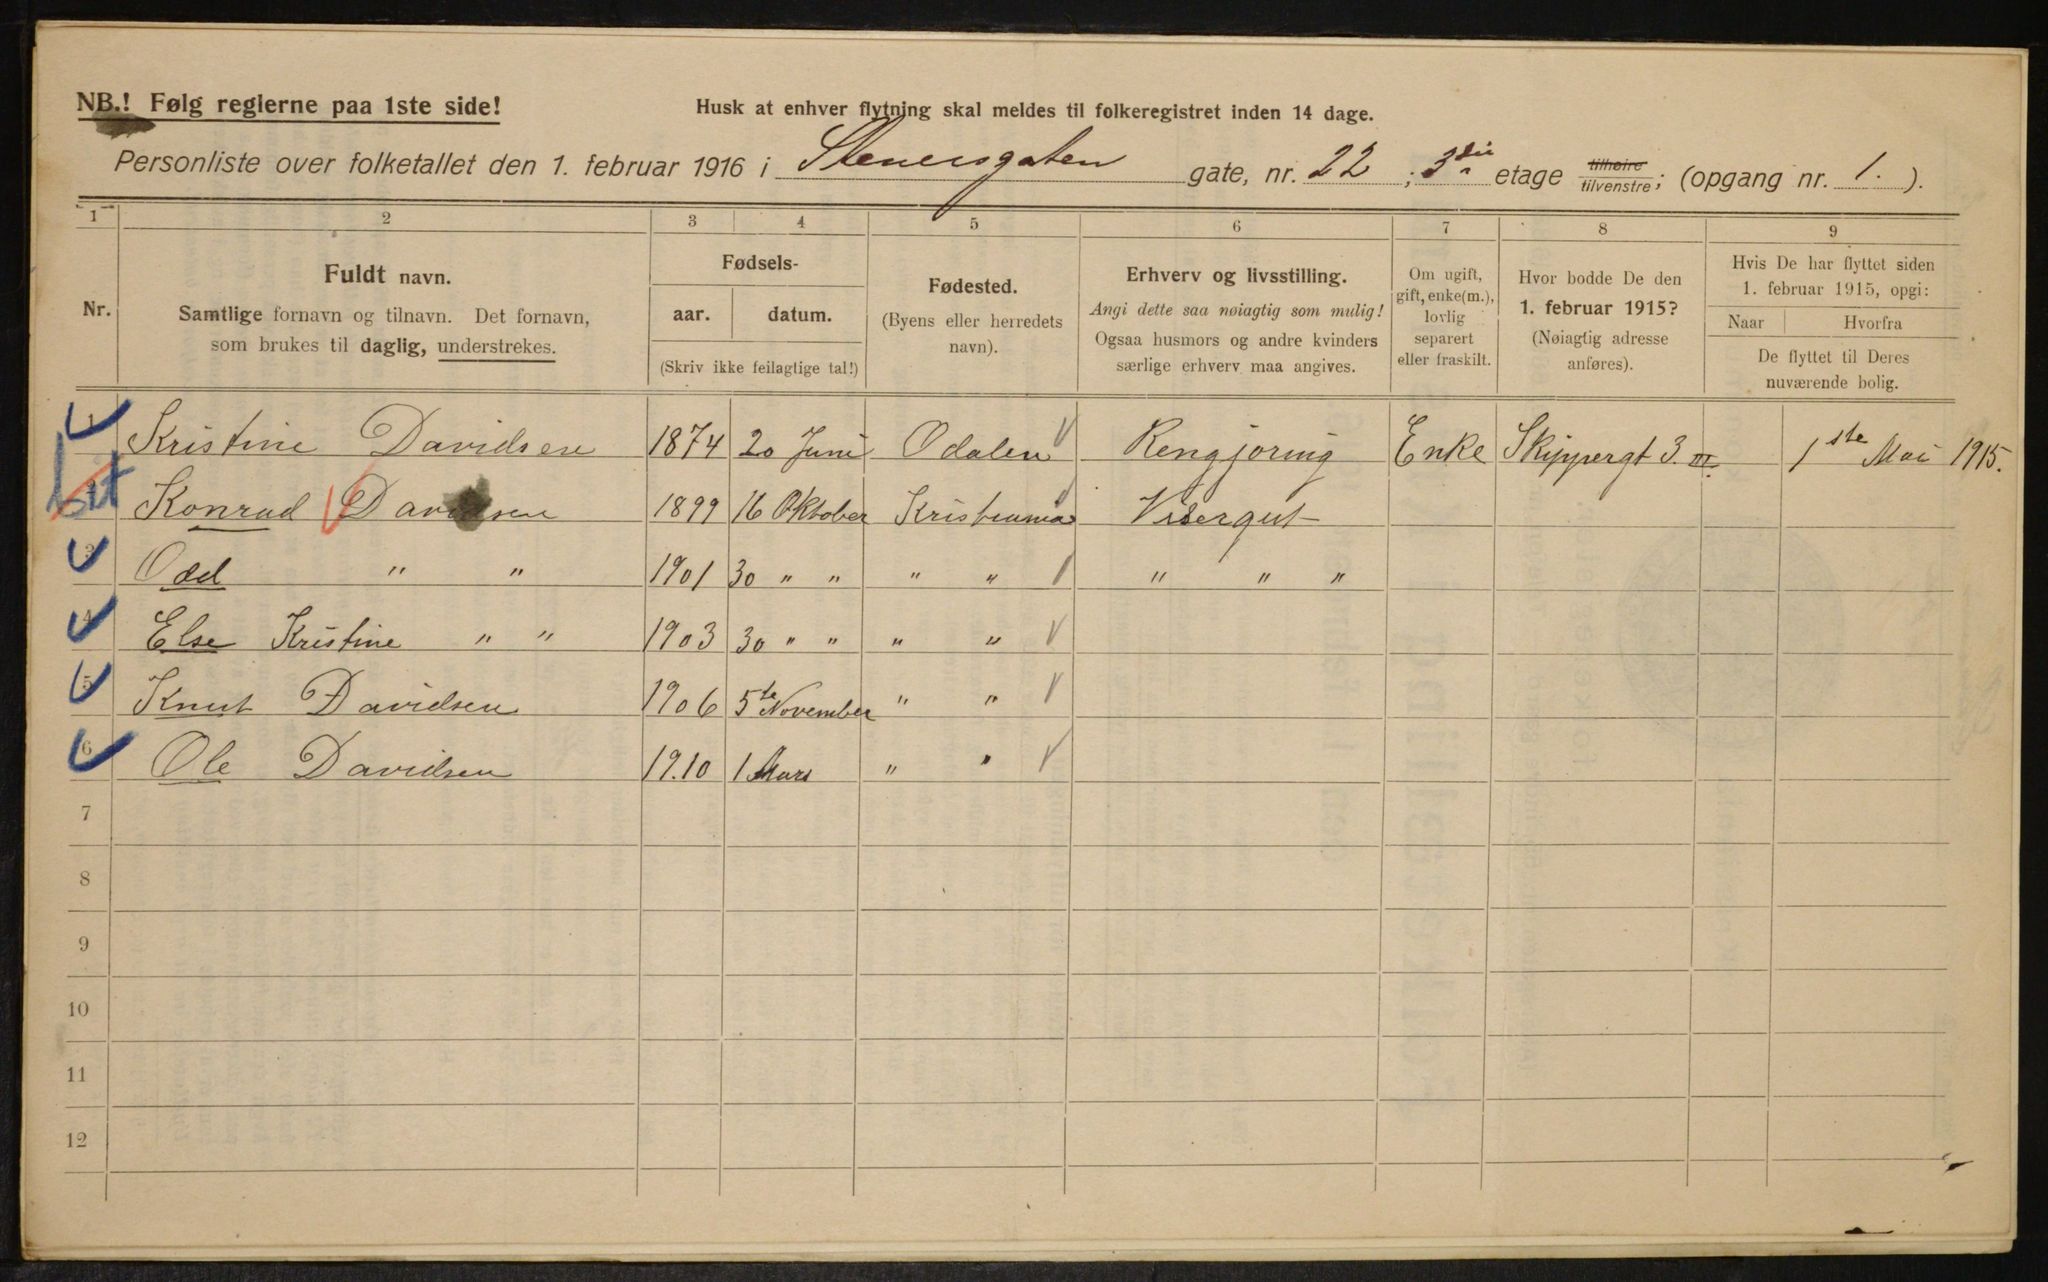 NB.! Følg reglerne paa 1ste side!
Husk at enhver flytning skal meldes til folkeregistret inden 14 dage.
Personliste over folketallet den 1. februar 1916 i Stenersgaten gate, nr. 22 ; 3die etage tilhøire/tilvenstre; (opgang nr. 1. ).
1 2 3 4 5 6 7 8 9
Nr.
Fuldt navn.
Samtlige fornavn og tilnavn. Det fornavn,
som brukes til daglig, understrekes.
Fødsels-
aar. datum.
(Skriv ikke feilagtige tal!)
Fødested.
(Byens eller herredets
navn).
Erhverv og livsstilling.
Angi dette saa nøiagtig som mulig!
Ogsaa husmors og andre kvinders
særlige erhverv maa angives.
Om ugift,
gift, enke(m.),
lovlig
separert
eller fraskilt.
Hvor bodde De den
1. februar 1915?
(Nøiagtig adresse
anføres).
Hvis De har flyttet siden
1. februar 1915, opgi:
Naar Hvorfra
De flyttet til Deres
nuværende bolig.
1 Kristine Davidsen 1874 20 Juni Odalen Rengjøring Enke Skippergt 3. III. 1ste Mai 1915.
Konrad Davidsen 1899 16 Oktober Kristiania Visergut
3 Odd " " 1901 30 " " " " " " "
4 Else Kristine " " 1903 30 " " " "
5 Knut Davidsen 1906 5te November " "
6 Ole Davidsen 19.10 1 Mars " "
7
8
9
10
11
12